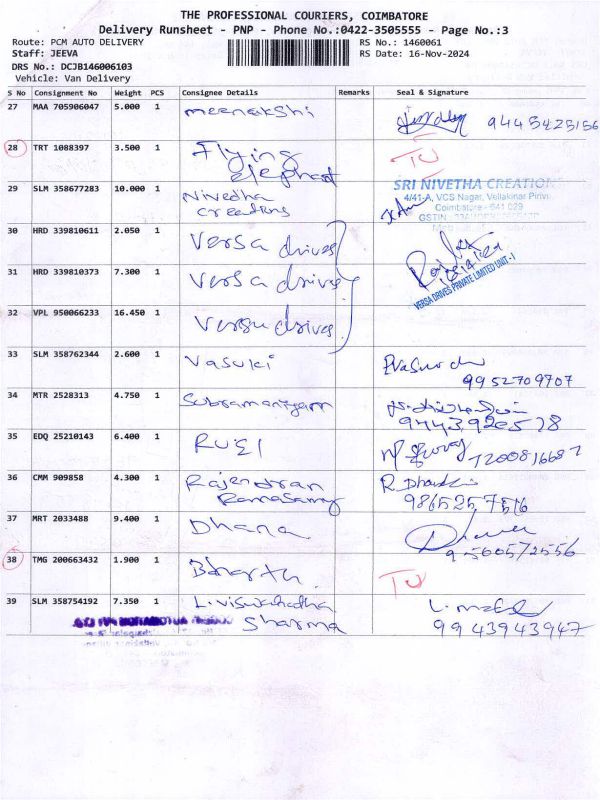 THE PROFESSIONAL COURIERS, COIMBATORE
Delivery Runsheet - PNP - Phone No.:0422-3505555 - Page No.:3
Route: PCM AUTO DELIVERY
Staff: JEEVA
DRS No.: DCJB146006103
Vehicle: Van Delivery
RS No.: 1460061
RS Date: 16-Nov-2024
S No Consignment No Weight PCS Consignee Details Remarks Seal & Signature
27 MAA 705906047 5.000 1 meenakshi 9445425156
28 TRT 1088397 3.500 1 Flying TU
elephant
29 SLM 358677283 10.000 1 Nivedha SRI NIVETHA CREATION
creations 4/41-A, VCS Nagar, Vellakinar Pirivu
Coimbatore - 641 029
GSTIN
30 HRD 339810611 2.050 1 Versa drives
31 HRD 339810373 7.300 1 Versa drives
VERSA DRIVES PRIVATE LIMITED UNIT-I
32 VPL 950066233 16.450 1 Versa drives
33 SLM 358762344 2.600 1 Vasuki
9952709707
34 MTR 2528313 4.750 1 Subramaniyam
9443920578
35 EDQ 25210143 6.400 1 7200816687
36 CMM 909858 4.300 1 Rajendran R.
Ramasamy 9865257516
37 MRT 2033488 9.400 1 Dhana
9560572556
38 TMG 200663432 1.900 1 TU
39 SLM 358754192 7.350 1 L. viswanatha
Sharma 9943943947